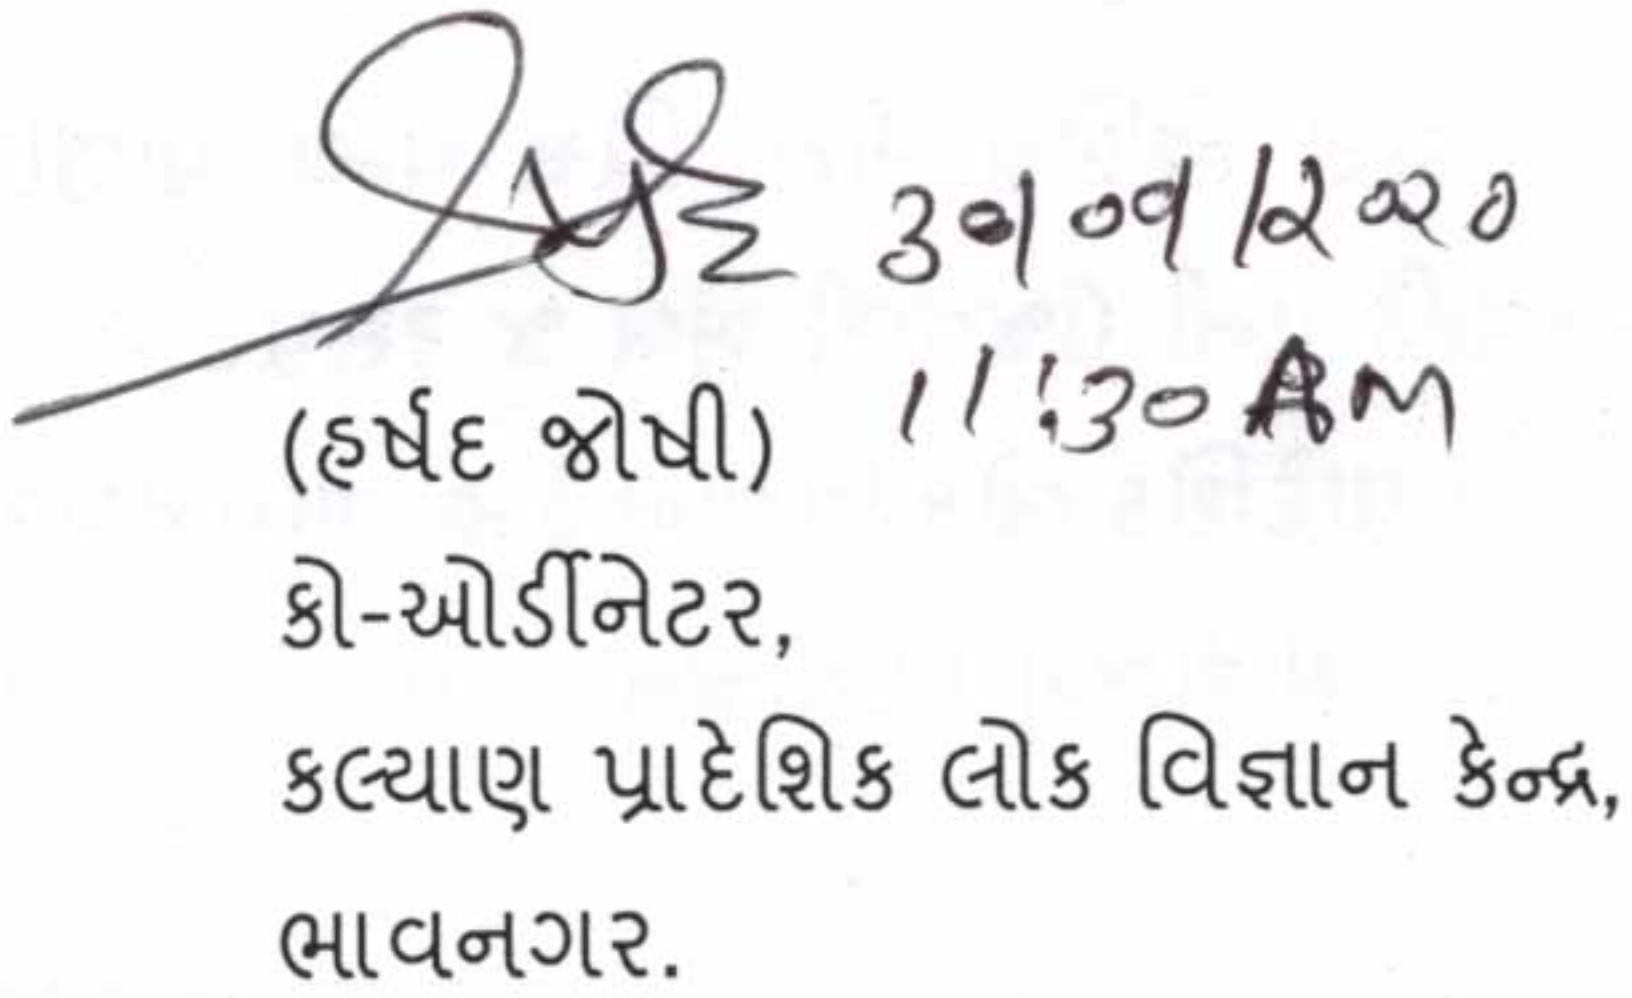 30/09/2020
11:30 AM
(હર્ષદ જોષી)
કો-ઓર્ડીનેટર,
કલ્યાણ પ્રાદેશિક લોક વિજ્ઞાન કેન્દ્ર,
ભાવનગર.